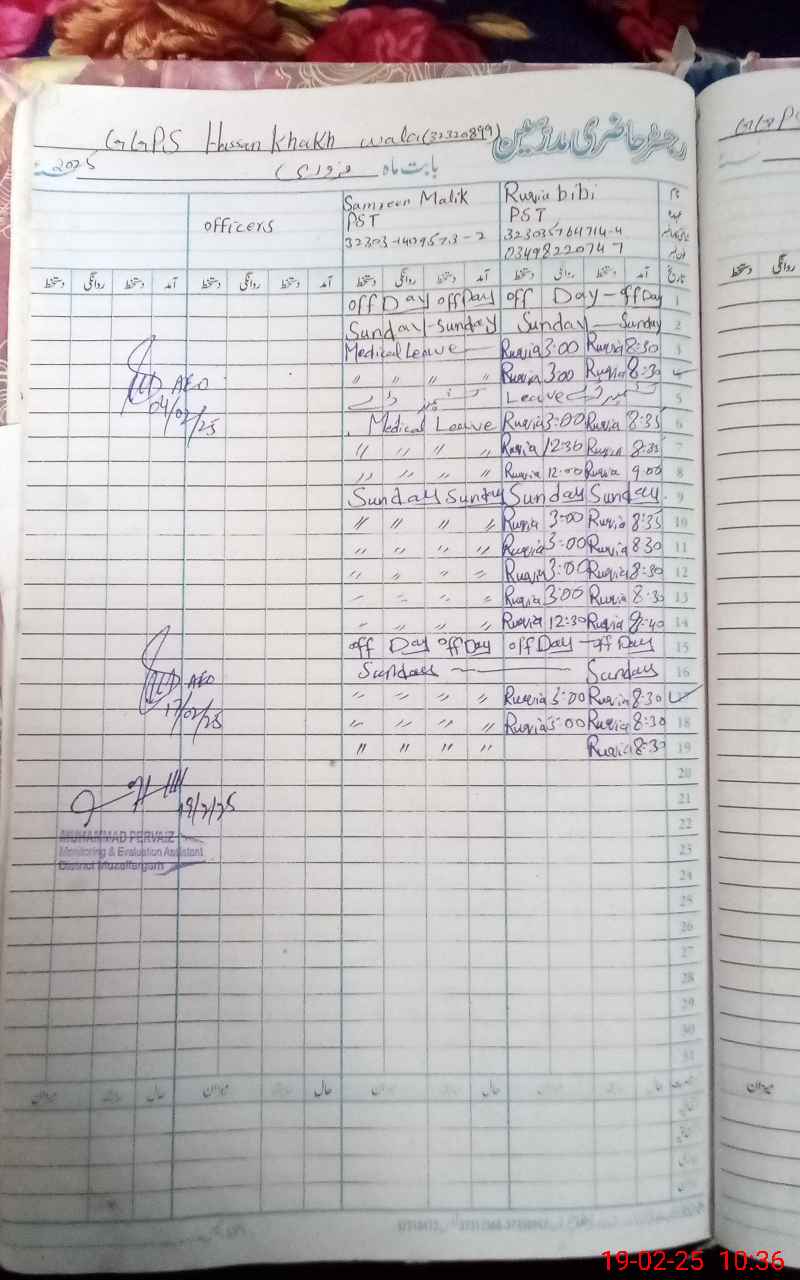 GGPS Hussan Khakh wala (32320899) رجسٹر حاضری مدرسین
بابت ماہ فروری 2025
officers Samreen Malik Ruqia bibi نام
PST PST عہدہ
32303-1409573-2 323035764714-4
03498220747
تاریخ آمد دستخط روانگی دستخط آمد دستخط روانگی دستخط آمد دستخط روانگی دستخط آمد دستخط روانگی دستخط
off Day off Day off Day - off Day 1
Sunday - Sunday Sunday — Sunday 2
Medical Leave Ruqia 3:00 Ruqia 8:30 3
" " " " Ruqia 3:00 Ruqia 8:30 4
AEO
04/02/25
Leave 5
Medical Leave Ruqia 3:00 Ruqia 8:35 6
" " " " Ruqia 12:30 Ruqia 8:35 7
" " " " Ruqia 12:00 Ruqia 9:00 8
Sunday Sunday Sunday Sunday 9
" " " " Ruqia 3:00 Ruqia 8:35 10
" " " " Ruqia 3:00 Ruqia 830 11
" " " " Ruqia 3:00 Ruqia 8:30 12
" " " " Ruqia 3:00 Ruqia 8:30 13
" " " " Ruqia 12:30 Ruqia 8:40 14
off Day off Day off Day - off Day 15
Sunday — Sunday 16
" " " " Ruqia 3:00 Ruqia 8:30 17
AEO
17/02/25
" " " " Ruqia 3:00 Ruqia 8:30 18
" " " " Ruqia 8:30 19
20
21
19/2/25
22
MUHAMMAD PERVAIZ
Monitoring & Evaluation Assistant
District Muzaffargarh
23
24
25
26
27
28
29
30
31
حال سابقہ میزان حال سابقہ میزان حال سابقہ میزان حال سابقہ میزان
19-02-25 10:36